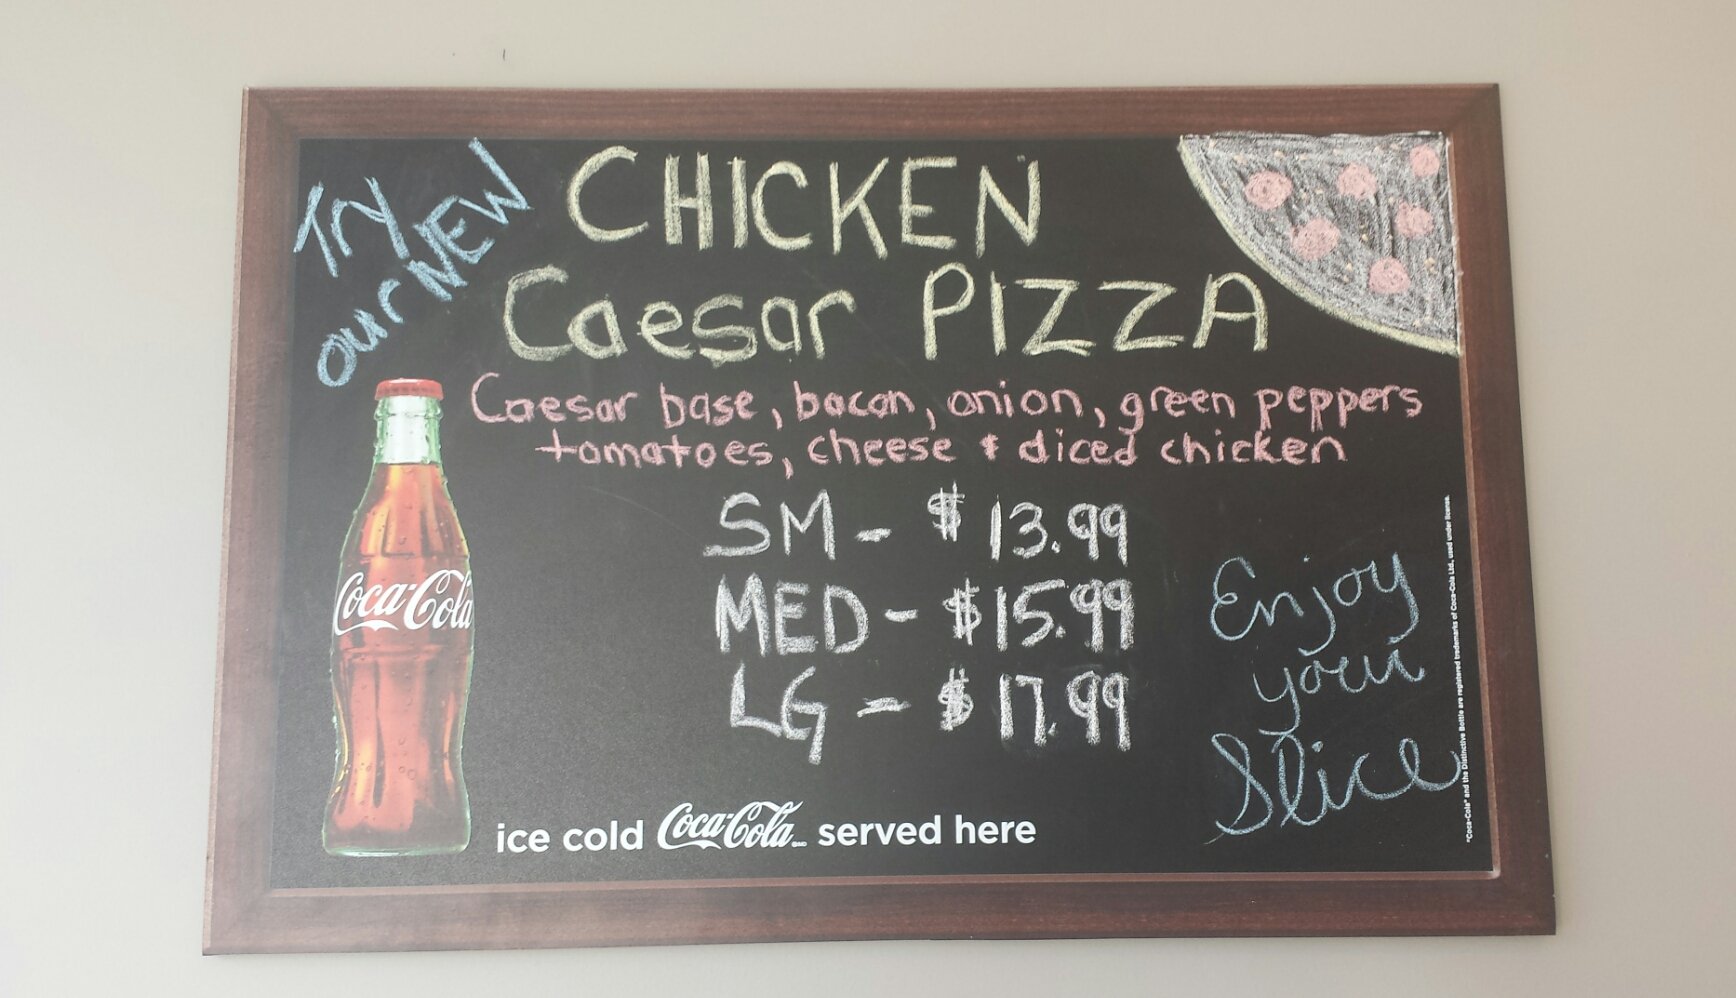 Try
our NEW
CHICKEN
Caesar PIZZA
Caesar base, bacon, onion, green peppers
tomatoes, cheese & diced chicken
SM - $13.99
MED - $15.99
LG - $17.99
Enjoy
your
Slice
Coca-Cola
ice cold Coca-Cola served here
"Coca-Cola" and the Distinctive Bottle are registered trademarks of Coca-Cola Ltd., used under license.